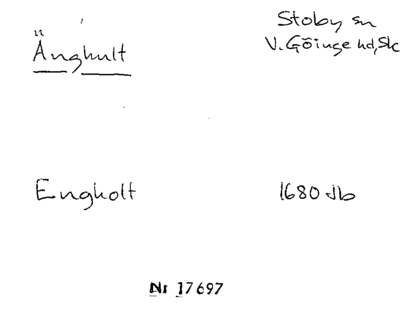 Änghult
Stoby sn
V. Göinge hd, Sk
Engholt
1680 Jb
Nr 17697